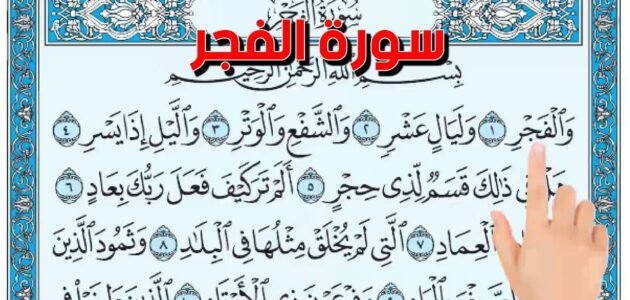 سُورَةُ الْفَجْرِ
سورة الفجر
بِسْمِ اللَّهِ الرَّحْمَٰنِ الرَّحِيمِ
وَالْفَجْرِ ١ وَلَيَالٍ عَشْرٍ ٢ وَالشَّفْعِ وَالْوَتْرِ ٣ وَاللَّيْلِ إِذَا يَسْرِ ٤
فِي ذَٰلِكَ قَسَمٌ لِّذِي حِجْرٍ ٥ أَلَمْ تَرَ كَيْفَ فَعَلَ رَبُّكَ بِعَادٍ ٦
الْعِمَادِ ٧ الَّتِي لَمْ يُخْلَقْ مِثْلُهَا فِي الْبِلَادِ ٨ وَثَمُودَ الَّذِينَ